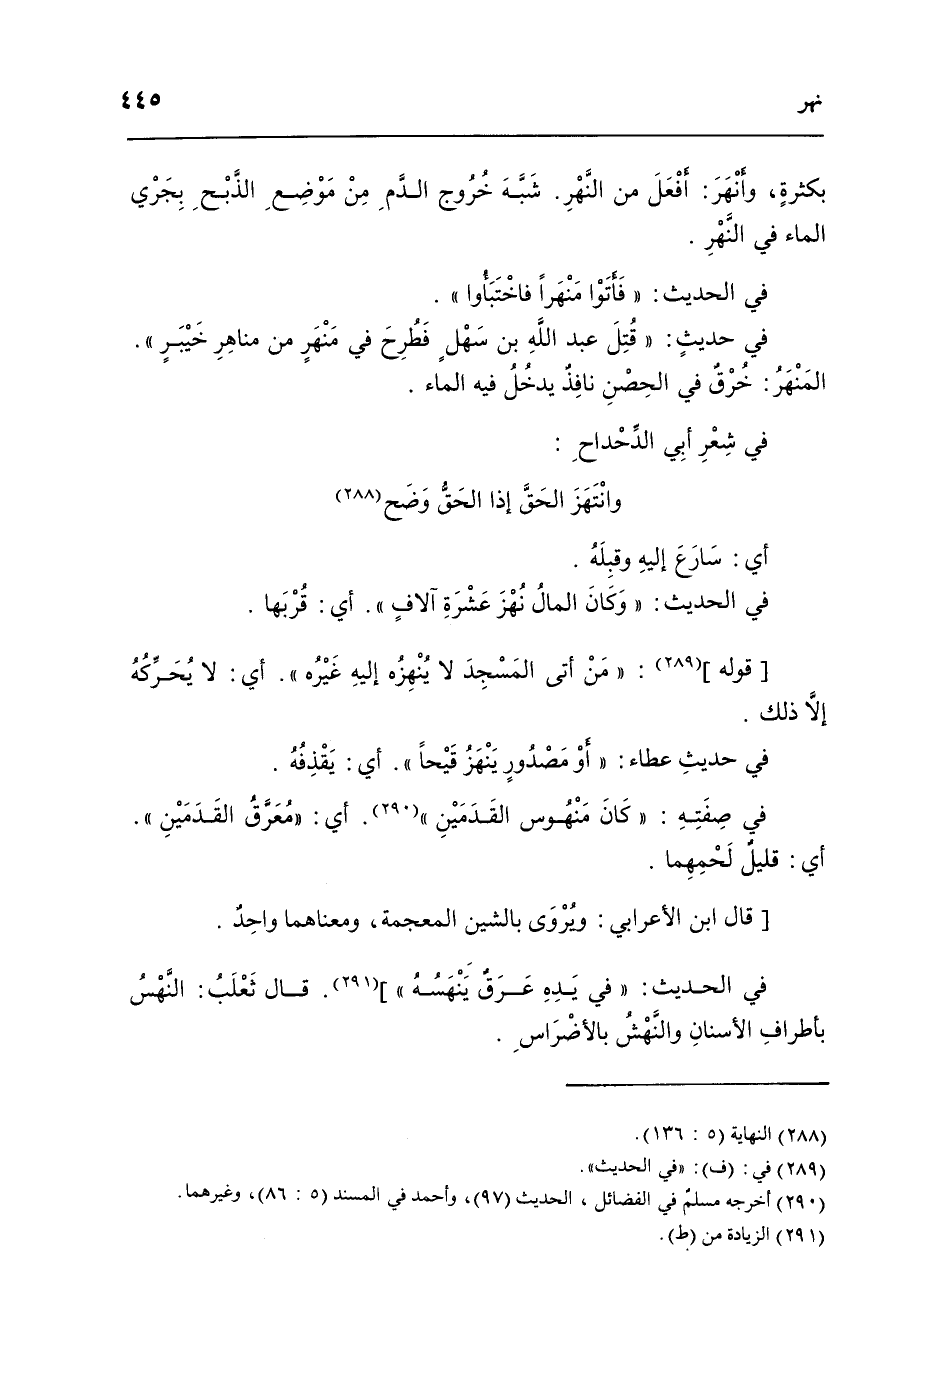 نهر ٤٤٥
بكثرةٍ، وأَنْهَرَ: أَفْعَلَ من النَّهْرِ. شَبَّهَ خُرُوج الدَّمِ مِنْ مَوْضِعِ الذَّبْحِ بِجَرْي
الماء في النَّهْرِ .
في الحديث: « فَأَتَوْا مَنْهَراً فاخْتَبَأُوا » .
في حديثٍ: « قُتِلَ عبد اللَّهِ بن سَهْلٍ فَطُرِحَ في مَنْهَرٍ من مناهِرِ خَيْبَرٍ ».
المَنْهَرُ: خُرْقٌ في الحِصْنِ نافِذٌ يدخُلُ فيه الماء .
في شِعْرِ أبِي الدَّحْداحِ :
وانْتَهَزَ الحَقَّ إذا الحَقُّ وَضَح(٢٨٨)
أي: سَارَعَ إليهِ وقبِلَهُ .
في الحديث: « وَكَانَ المالُ نُهْزَ عَشْرَةِ آلافٍ ». أي: قُرْبَها .
[ قوله ](٢٨٩) : « مَنْ أتى المَسْجِدَ لا يُنْهِزُه إليهِ غَيْرُه ». أي: لا يُحَرِّكُهُ
إلاَّ ذلك .
في حديثِ عطاء: « أَوْ مَصْدُورٍ يَنْهَزُ قَيْحاً ». أي: يَقْذِفُهُ .
في صِفَتِهِ : « كَانَ مَنْهُوس القَدَمَيْنِ »(٢٩٠). أي: «مُعَرَّقُ القَدَمَيْنِ ».
أي: قليلُ لَحْمِهِما .
[ قال ابن الأعرابي: ويُرْوَى بالشين المعجمة، ومعناهما واحِدٌ .
في الحديث: « في يَدِهِ عَرَقٌ يَنْهَسُهُ » ](٢٩١). قال ثَعْلَبُ: النَّهْسُ
بأطرافِ الأسنانِ والنَّهْشُ بالأضْرَاسِ .
(٢٨٨) النهاية (٥ : ١٣٦).
(٢٨٩) في: (ف): «في الحديث».
(٢٩٠) أخرجه مسلمٌ في الفضائل ، الحديث (٩٧)، وأحمد في المسند (٥ : ٨٦)، وغيرهما.
(٢٩١) الزيادة من (ط).